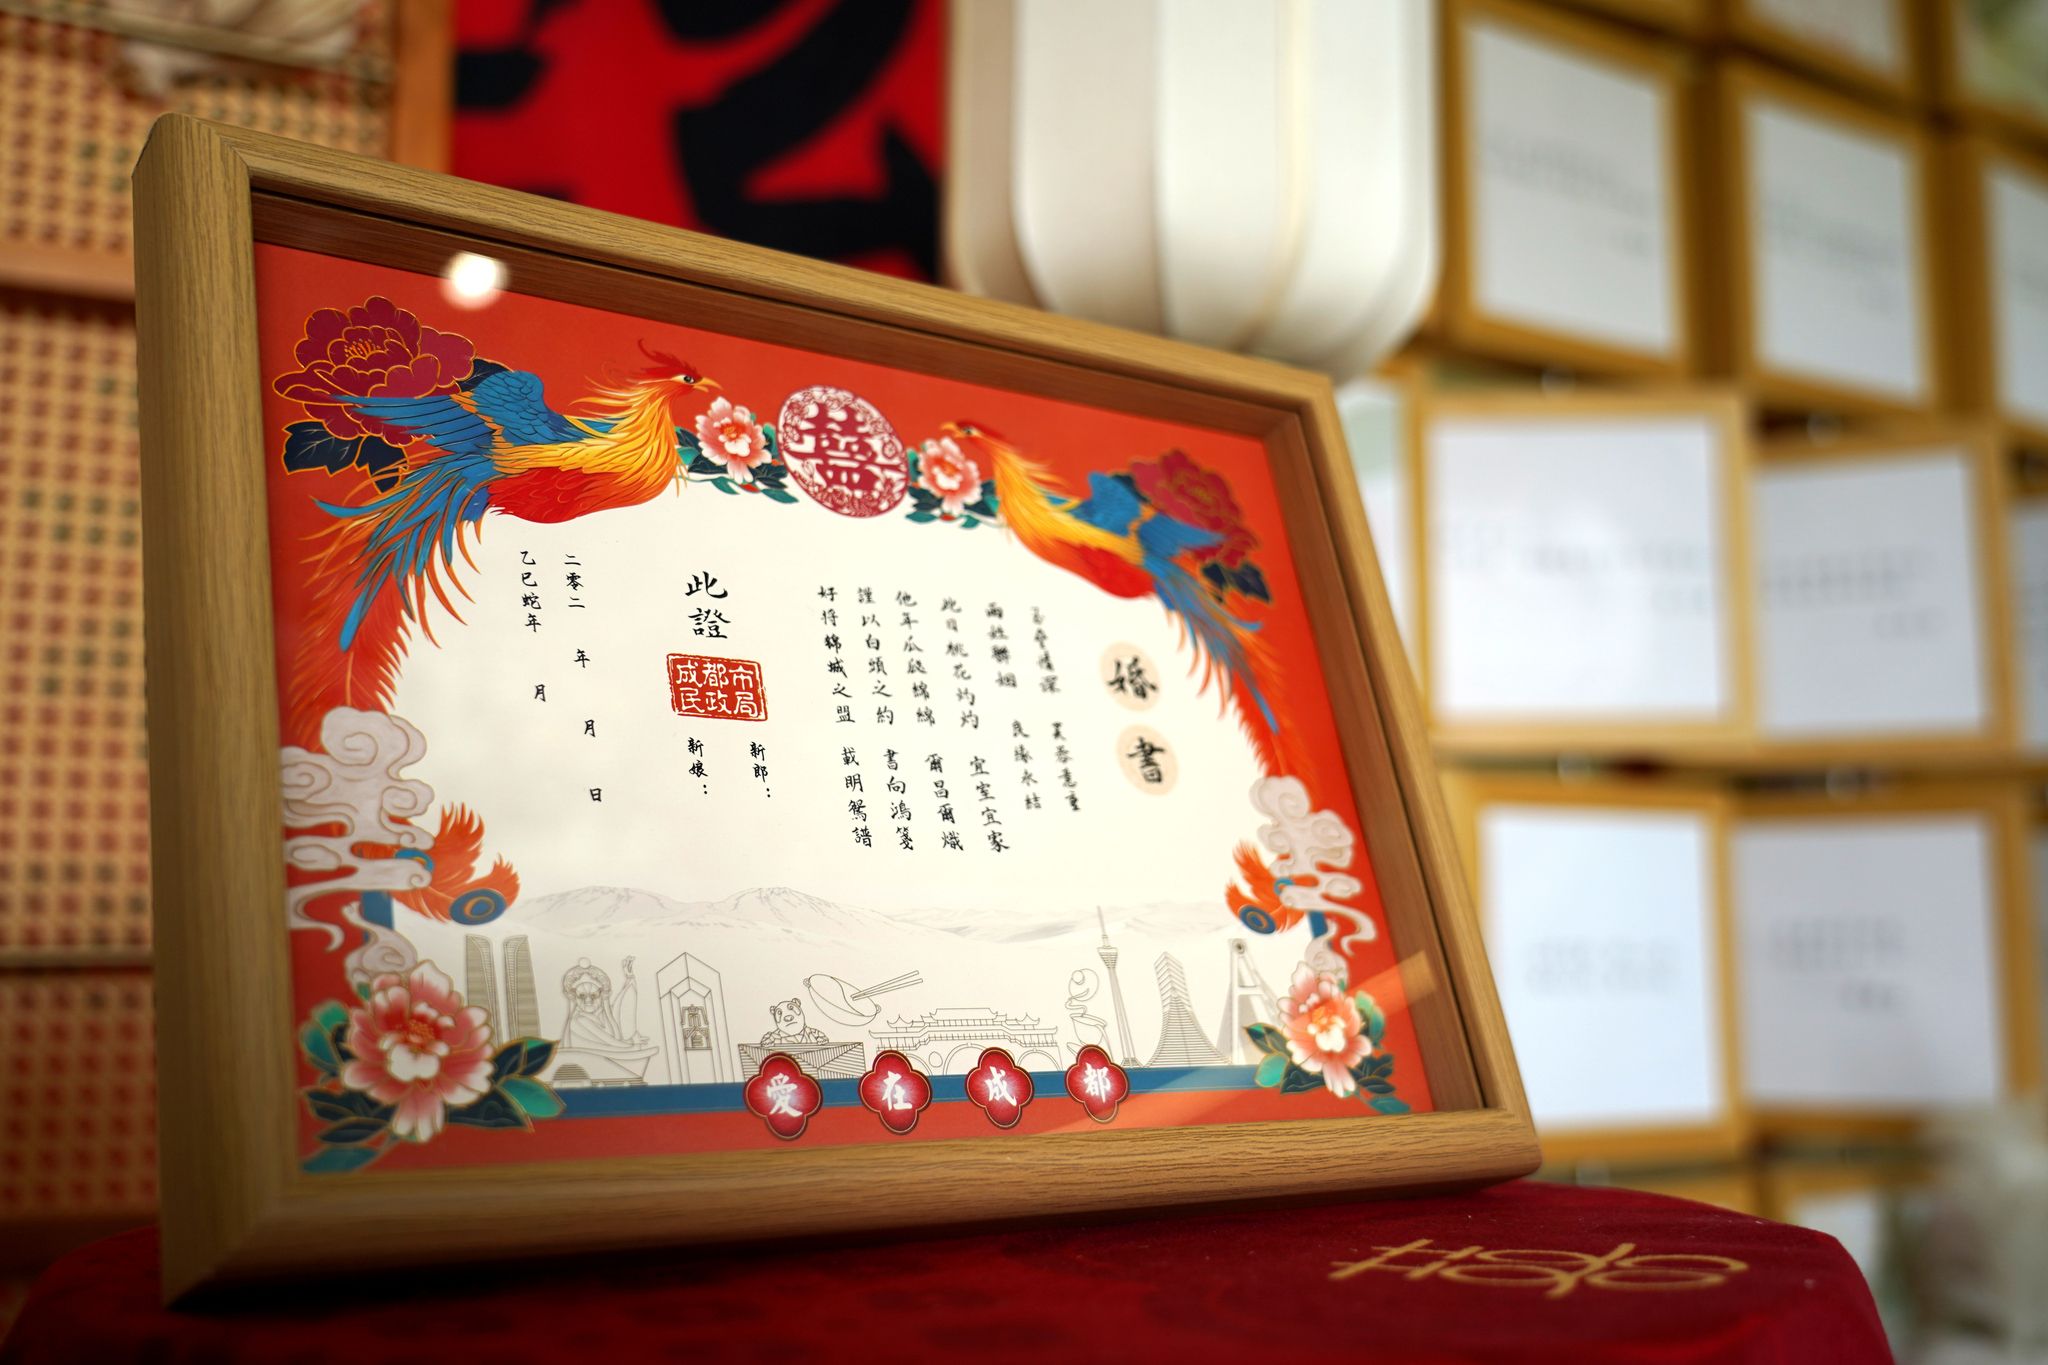 囍
婚書
情深 芙蓉意重
兩姓聯姻 良緣永結
此日桃花灼灼 宜室宜家
他年瓜瓞綿綿 爾昌爾熾
謹以白頭之約 書向鴻箋
好將錦城之盟 載明鴛譜
新郎：
此證
成都市
民政局
新娘：
二零二 年 月 日
乙巳蛇年 月
愛在成都